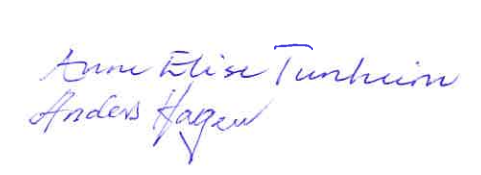 Anne Elise Tunheim
Anders Hagen